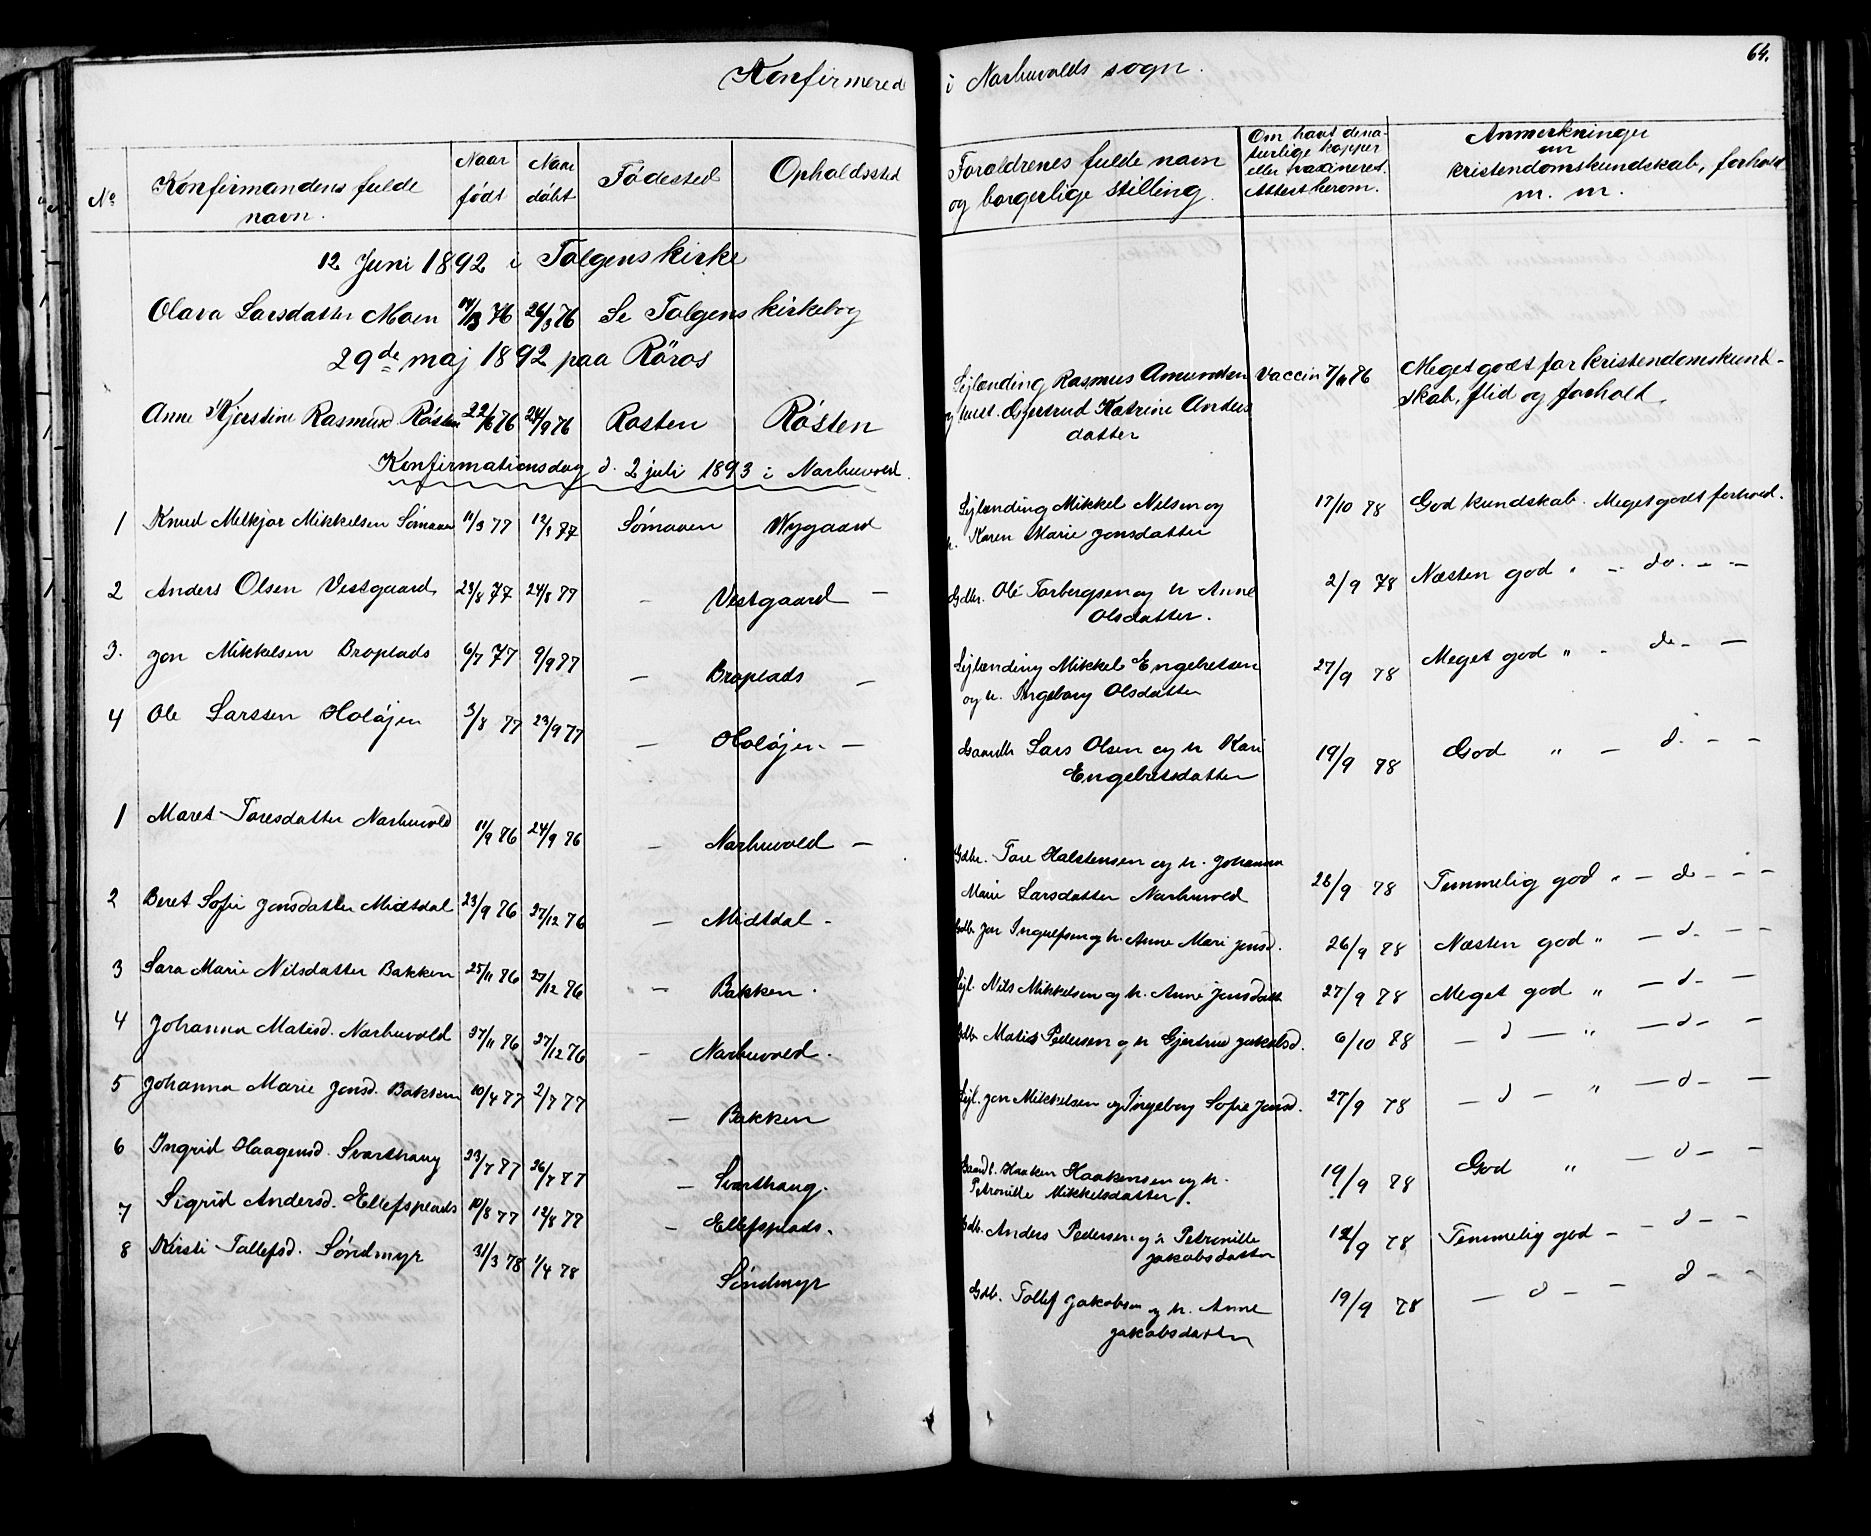 Konfirmered i Narbuvolds sogn. 64.
No Konfirmandens fulde navn. Naar født Naar döbt Födested Opholdssted Foraldrenes fulde navn og borgerlige stilling. Om havt de na- turlige kopper eller vaxineret. Attest herom. Anmerkninger om kristendomskundskab, forhold m. m.
12 Juni 1892 i Tolgens kirke
Olava Larsdatter Moen 76 26/3 76 Se Tolgens kirkebog
29de maj 1892 paa Röros
Anne Kjerstine Rasmusd. Røsten 22/6 76 24/9 76 Røsten Røsten Lejlænding Rasmus Amundsen og hust. Gjertrud Katrine Anders datter Vaccin 76 Meget godt for kristendomskund- skab, flid og forhold.
Konfirmationsdag d. 2 juli 1893 i Narbuvold.
1 Knud Melkjor Mikkelsen Sømoen 11/3 77 77 Sømoen Nygaard Lejlænding Mikkel Nilsen og h. Karen Marie Jonsdatter 17/10 78 God kundskab. Meget godt forhold.
2 Anders Olsen Vestgaard 23/8 77 24/8 77 — Vestgaard — Gdbr. Ole Torbergsen og h Anne Olsdatter. 2/9 78 Næsten god " — do. — —
3. Jon Mikkelsen Broplads 6/7 77 9/9 77 — Broplads — Lejlænding Mikkel Engebretsen og h. Ingeborg Olsdatter 27/9 78 Meget god " - do - —
4 Ole Larssen Holøjen 3/8 77 23/9 77 — Holøjen — Gaardb Lars Olsen og h Kari Engebretsdatter 19/9 78 God " — d. — —
1 Maret Toresdatter Narbuvold 11/9 76 24/9 76 — Narbuvold — Gdbr. Tore Halstensen og h. Johanna Marie Larsdatter Narbuvold 28/9 78 Temmelig god " — do — — —
2 Beret Sofie Jonsdatter Midtdal 23/9 76 27/12 76 — Midtdal - Gdb. Jon Ingulfsen og h. Anne Mari Jonsd. 26/9 78 Næsten god " — d. — —
3 Sara Marie Nilsdatter Bakken 25/11 76 27/12 76 — Bakken. Lejl. Nils Mikkelsen og h. Anne Jonsdatt 27/9 78 Meget god " — d — —
4 Johanna Matisd. Narbuvold 27/11 76 27/12 76 — Narbuvold. Gdb Matis Pedersen og h Gjertrud Jakobsd. 6/10 78 — d — " — d — —
5 Johanna Marie Jonsd. Bakken 10/4 77 2/7 77 — Bakken Lejl. Jon Mikkelsen og Ingeborg Sofie Jonsd. 27/9 78 — d — " — d — —
6 Ingrid Haagensd. Svarthaug 23/7 77 26/7 77 — Svarthaug. Gaardb. Haaken Haakensen og h. Petronille Mikkelsdatter. 19/9 78 God " — d — —
7 Sigrid Andersd. Ellefsplads 10/8 77 12/8 77 — Ellefsplads. Gdb. Anders Pedersen og h Petronille Jakobsdatter 12/9 78 Temmelig god — — d — —
8 Kirsti Tollefsd. Söndmyr 31/3 78 1/4 78 Söndmyr Gdb. Tollef Jakobsen og h. Anne Jakobsdatter 19/9 78 — d — — d — —